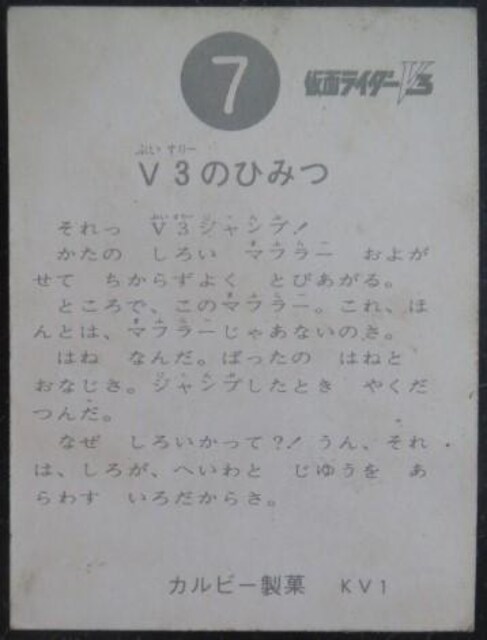 7
仮面ライダーV3
ぶいすりー
V3のひみつ
それっ V3ジャンプ!
かたの しろい マフラー およが
せて ちからずよく とびあがる。
ところで、このマフラー。これ、ほ
んとは、マフラーじゃあないのさ。
はね なんだ。ばったの はねと
おなじさ。ジャンプしたとき やくだ
つんだ。
なぜ しろいかって?! うん、それ
は、しろが、へいわと じゆうを あ
らわす いろだからさ。
カルビー製菓 KV1